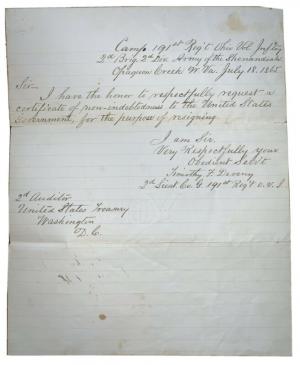 Camp 191st Reg't Ohio Vol Inf'try
2d Brig. 2d Div. Army of the Shenandoah
Opequon Creek W. Va. July 18. 1865
Sir—
I have the honor to respectfully request a
certificate of non-indebtedness to the United States
Government, for the purpose of resigning.
I am Sir.
Very Respectfully your
Obedient Serv't
Timothy F.
2d Lieut. Co. G. 191st Reg't O. V. I.
2d Auditor
United States Treasury
Washington
D.C.